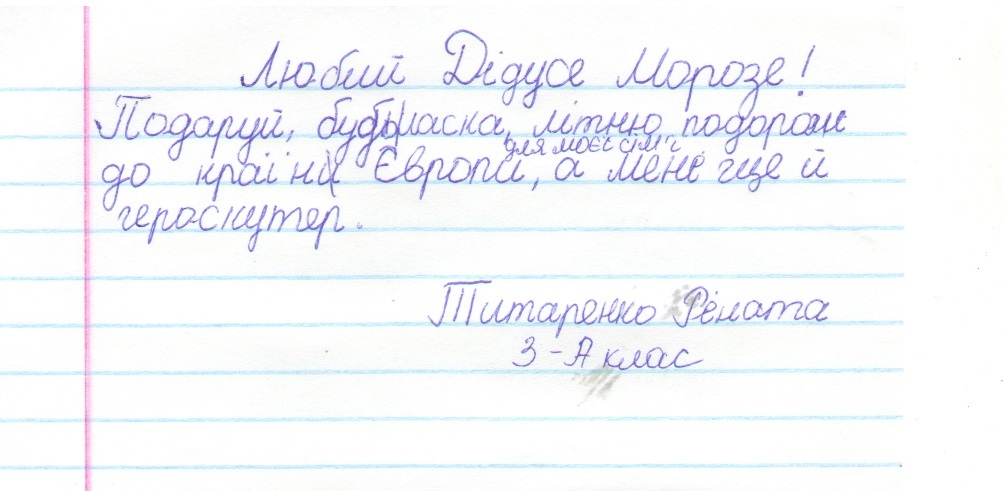 Любий Дідусе Морозе!
Подаруй, будьласка, літню подорож
до країни Європи, для моєї сім'ї а мені ще й
гераскутер.
Титаренко Рената
3-А клас